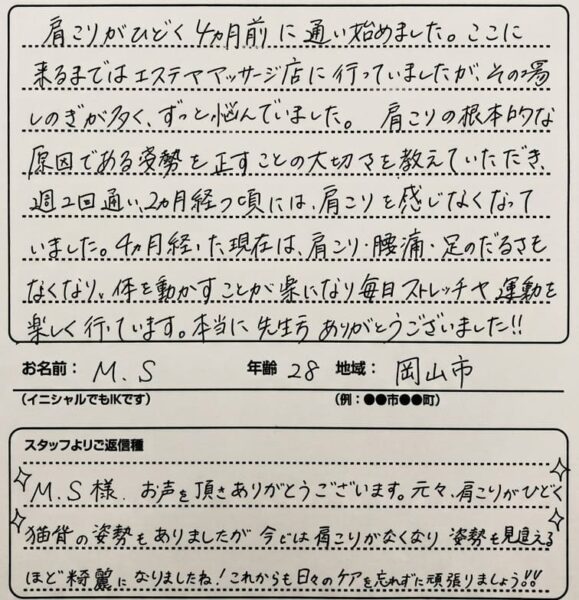 肩こりがひどく4カ月前に通い始めました。ここに
来るまではエステやマッサージ店に行っていましたが、その場
しのぎが多く、ずっと悩んでいました。 肩こりの根本的な
原因である姿勢を正すことの大切さを教えていただき、
週2回通い、2カ月経つ頃には、肩こりを感じなくなって
いました。4カ月経った現在は、肩こり・腰痛・足のだるさも
なくなり、体を動かすことが楽になり毎日ストレッチや運動を
楽しく行っています。本当に先生方ありがとうございました!!
お名前: M.S 年齢 28 地域: 岡山市
(イニシャルでもIKです) (例:●●市●●町)
スタッフよりご返信種
M.S様. お声を頂きありがとうございます。元々、肩こりがひどく
猫背の姿勢もありましたが今では肩こりがなくなり 姿勢も見違える
ほど綺麗になりましたね!これからも日々のケアを忘れずに頑張りましょう!!